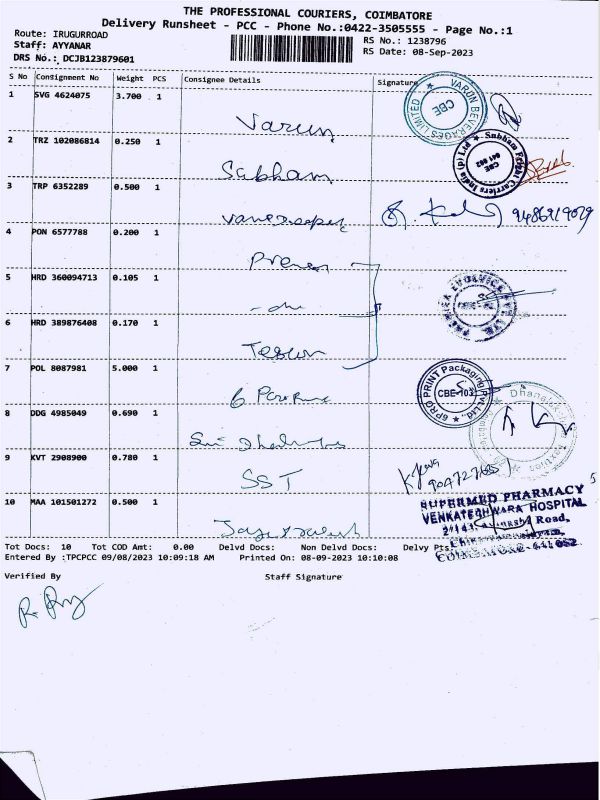 THE PROFESSIONAL COURIERS, COIMBATORE
Delivery Runsheet - PCC - Phone No.:0422-3505555 - Page No.:1
Route: IRUGURROAD
RS No.: 1238796
Staff: AYYANAR
RS Date: 08-Sep-2023
DRS No.: DCJB123879601
S No Consignment No Weight PCS Consignee Details Signature
1 SVG 4624075 3.700 1
Varun
VARUN BEVERAGES LIMITED ★ CBE ★
2 TRZ 102086814 0.250 1
Subham
Subham Freight Carriers India (P) Ltd ★ CBE 641 062
3 TRP 6352289 0.500 1
9486219029
4 PON 6577788 0.200 1
5 HRD 360094713 0.105 1
- do
6 HRD 389876408 0.170 1
7 POL 8087981 5.000 1
6PRO PRINT Packaging Pvt Ltd., ★ CBE-103
8 DDG 4985049 0.690 1
Sri
9 KVT 2908900 0.780 1
SST
10 MAA 101501272 0.500 1
SUPERMED PHARMACY
VENKATESHWARA HOSPITAL
Road,
COIMBATORE - 641 062
Tot Docs: 10 Tot COD Amt: 0.00 Delvd Docs: Non Delvd Docs: Delvy Pts:
Entered By :TPCPCC 09/08/2023 10:09:18 AM Printed On: 08-09-2023 10:10:08
Verified By Staff Signature